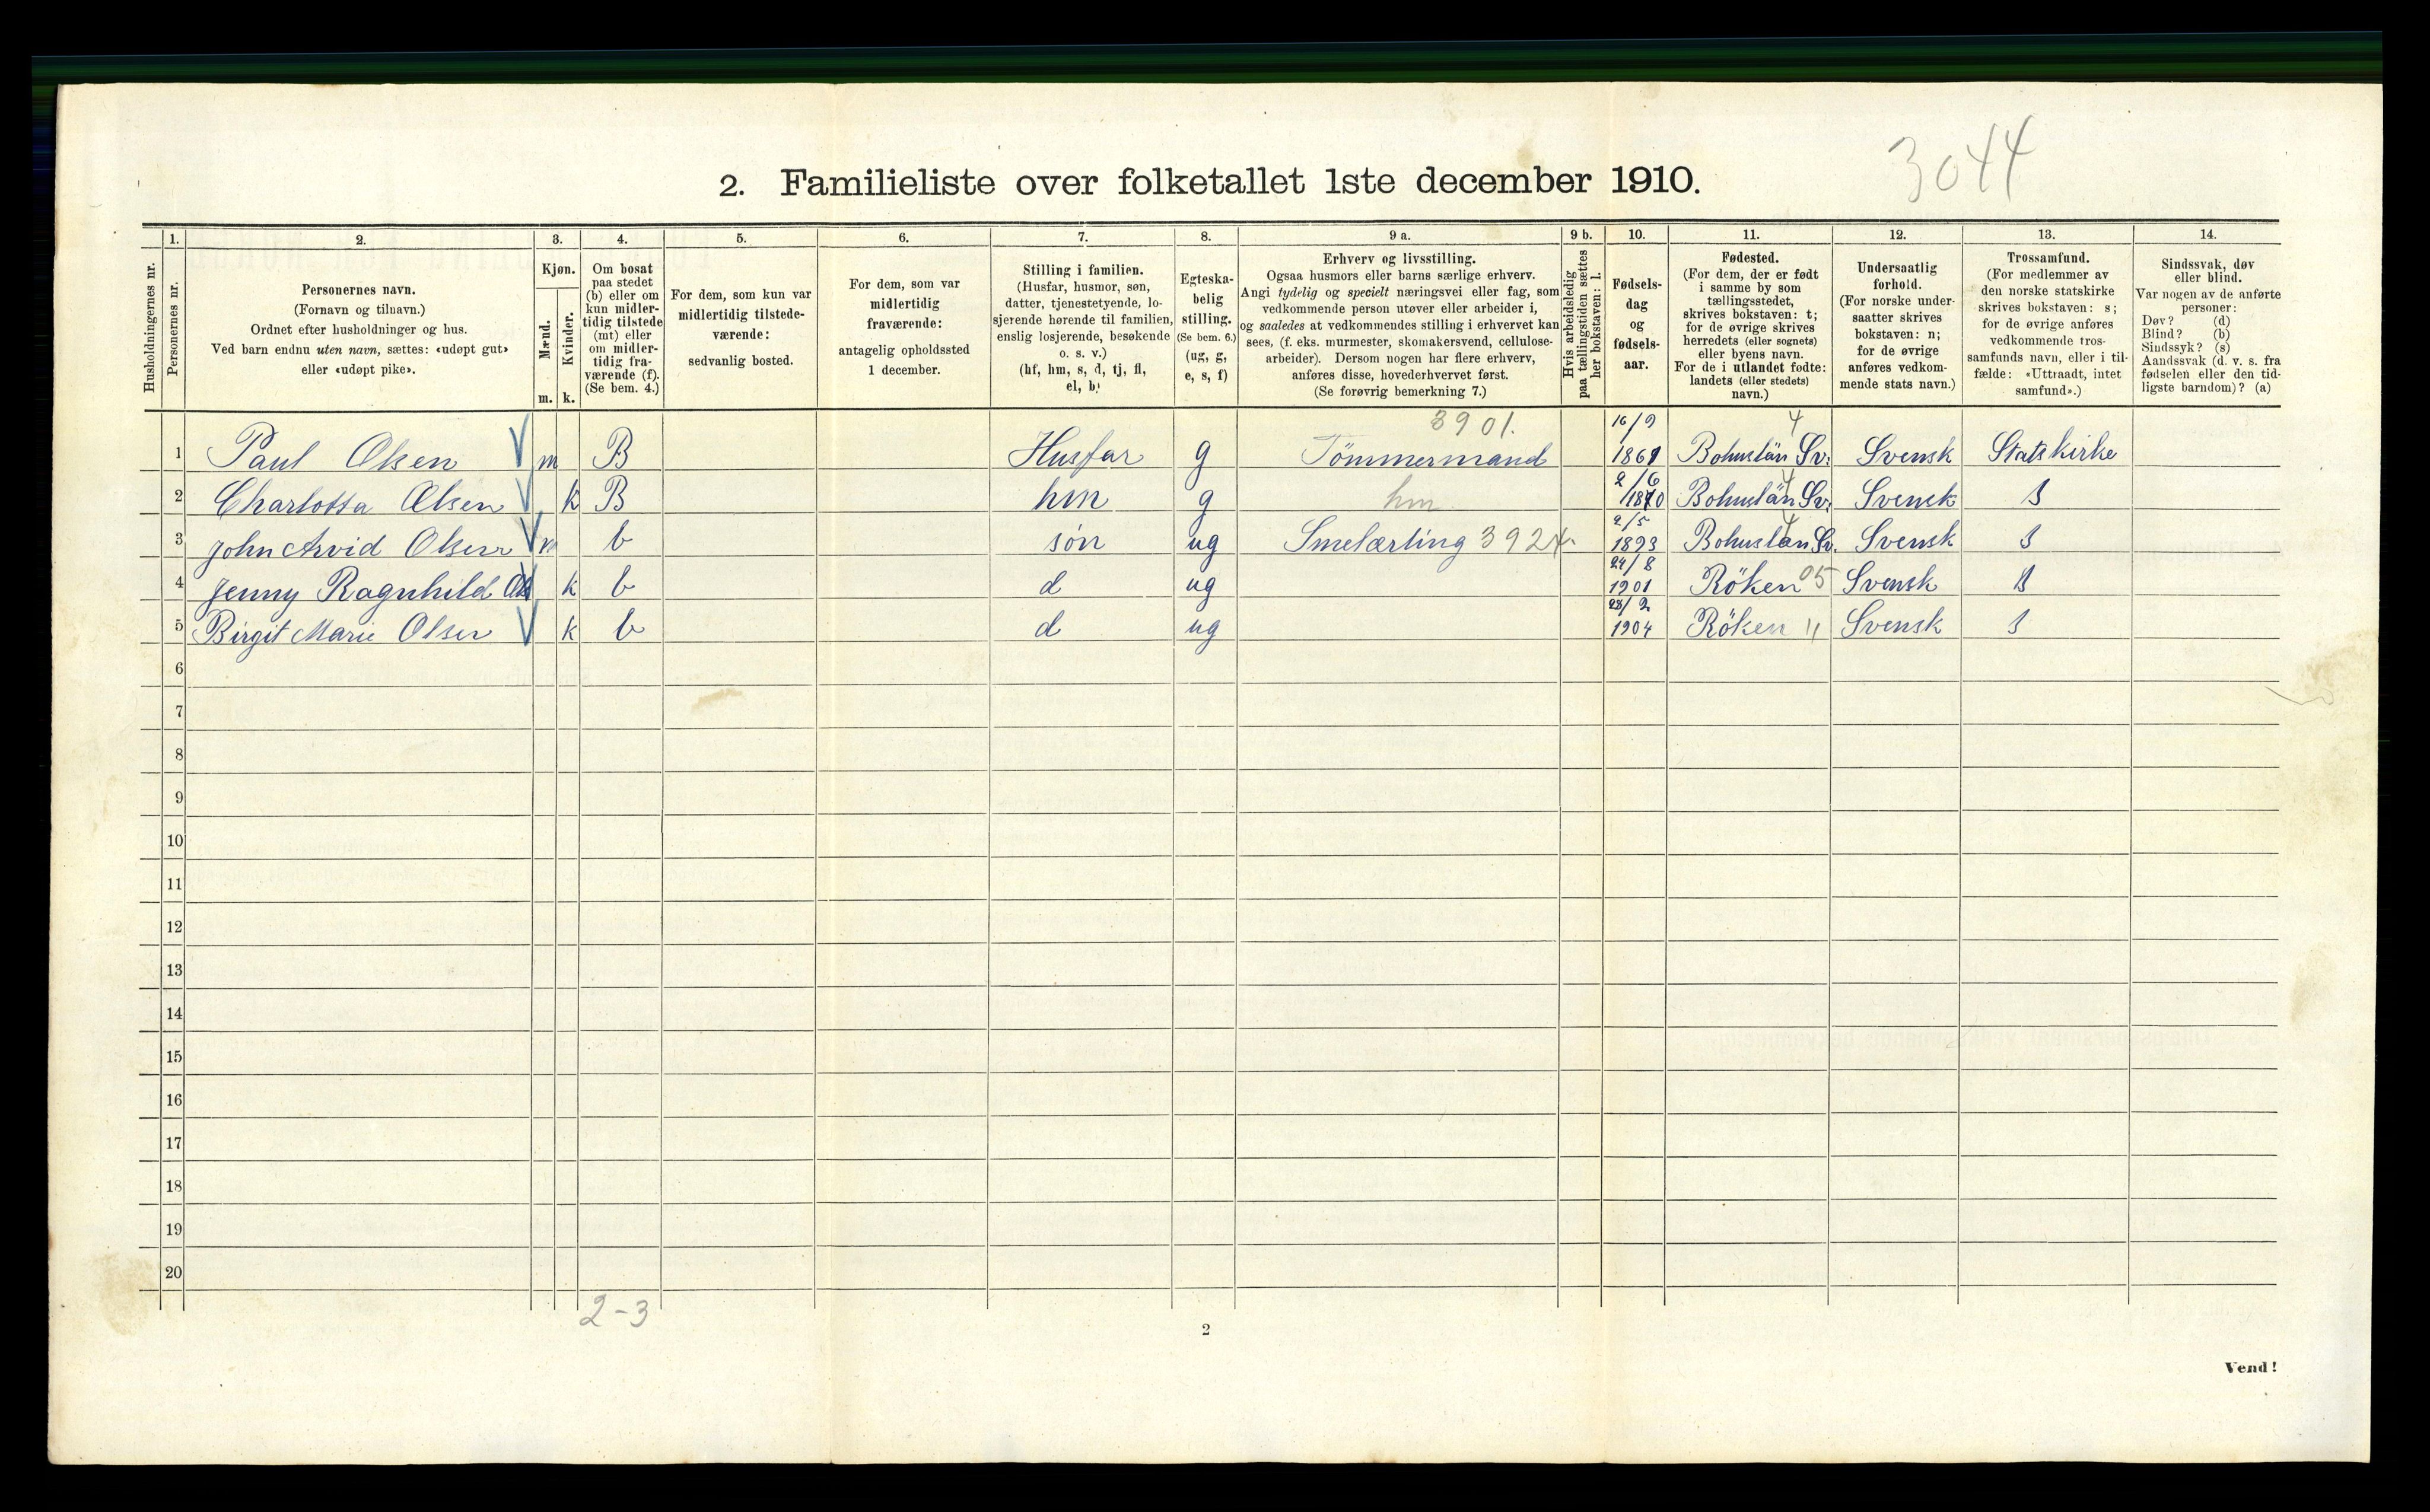 3044
2. Familieliste over folketallet 1ste december 1910.
Husholdningernes nr.
1.
Personernes nr.
2.
Personernes navn.
(Fornavn og tilnavn.)
Ordnet efter husholdninger og hus.
Ved barn endnu uten navn, sættes: «udøpt gut»
eller «udøpt pike».
3.
Kjøn.
Mænd.
Kvinder.
m. k.
4.
Om bosat
paa stedet
(b) eller om
kun midler-
tidig tilstede
(mt) eller
om midler-
tidig fra-
værende (f).
(Se bem. 4.)
5.
For dem, som kun var
midlertidig tilstede-
værende:
sedvanlig bosted.
6.
For dem, som var
midlertidig
fraværende:
antagelig opholdssted
1 december.
7.
Stilling i familien.
(Husfar, husmor, søn,
datter, tjenestetyende, lo-
sjerende hørende til familien,
enslig losjerende, besøkende
o. s. v.)
(hf, hm, s, d, tj, fl,
el, b)
8.
Egteska-
belig
stilling.
(Se bem. 6.)
(ug, g,
e, s, f)
9 a.
Erhverv og livsstilling.
Ogsaa husmors eller barns særlige erhverv.
Angi tydelig og specielt næringsvei eller fag, som
vedkommende person utøver eller arbeider i,
og saaledes at vedkommendes stilling i erhvervet kan
sees, (f. eks. murmester, skomakersvend, cellulose-
arbeider). Dersom nogen har flere erhverv,
anføres disse, hovederhvervet først.
(Se forøvrig bemerkning 7.)
9 b.
Hvis arbeidsledig
paa tællingstiden sættes
her bokstaven: l.
10.
Fødsels-
dag
og
fødsels-
aar.
11.
Fødested.
(For dem, der er født
i samme by som
tællingsstedet,
skrives bokstaven: t;
for de øvrige skrives
herredets (eller sognets)
eller byens navn.
For de i utlandet fødte:
landets (eller stedets)
navn.)
12.
Undersaatlig
forhold.
(For norske under-
saatter skrives
bokstaven: n;
for de øvrige
anføres vedkom-
mende stats navn.)
13.
Trossamfund.
(For medlemmer av
den norske statskirke
skrives bokstaven: s;
for de øvrige anføres
vedkommende tros-
samfunds navn, eller i til-
fælde: «Uttraadt, intet
samfund».)
14.
Sindssvak, døv
eller blind.
Var nogen av de anførte
personer:
Døv? (d)
Blind? (b)
Sindssyk? (s)
Aandssvak (d. v. s. fra
fødselen eller den tid-
ligste barndom)? (a)
3901. 16/9 4
1 Paul Olsen m B Husfar g Tömmermand 1861 Bohuslän Sv. Svensk Statskirke
2/6 4
2 Charlotta Olsen k B hm g hm 1870 Bohuslän Sv. Svensk S
2/5 4
3 John Arvid Olsen m b sön ug Smelærling 3924. 1893 Bohuslän Sv. Svensk S
24/8
4 Jenny Ragnhild k b d ug 1901 Röken 05 Svensk S
28/2
5 Birgit Marie Olsen k b d ug 1904 Röken " Svensk S
6
7
8
9
10
11
12
13
14
15
16
17
18
19
20
2-3
2
Vend!